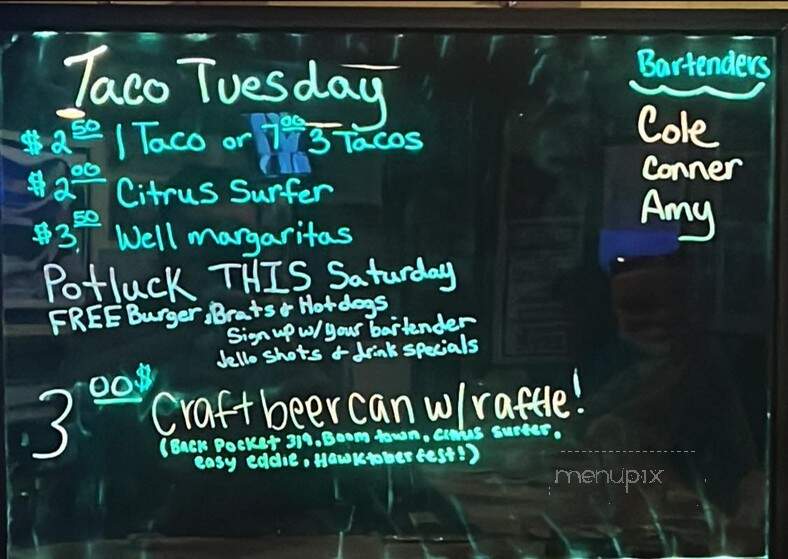 Taco Tuesday
$2.50 1 Taco or 7.00 3 Tacos
$2.00 Citrus Surfer
$3.50 Well margaritas
Potluck THIS Saturday
FREE Burger, Brats & Hotdogs
Sign up w/ your bartender
Jello shots & drink specials
3 00$ Craft beer can w/ raffle!
(Back Pocket 319, Boom town, Citrus Surfer,
easy eddie, Hawktoberfest!)
Bartenders
Cole
Conner
Amy
menupix